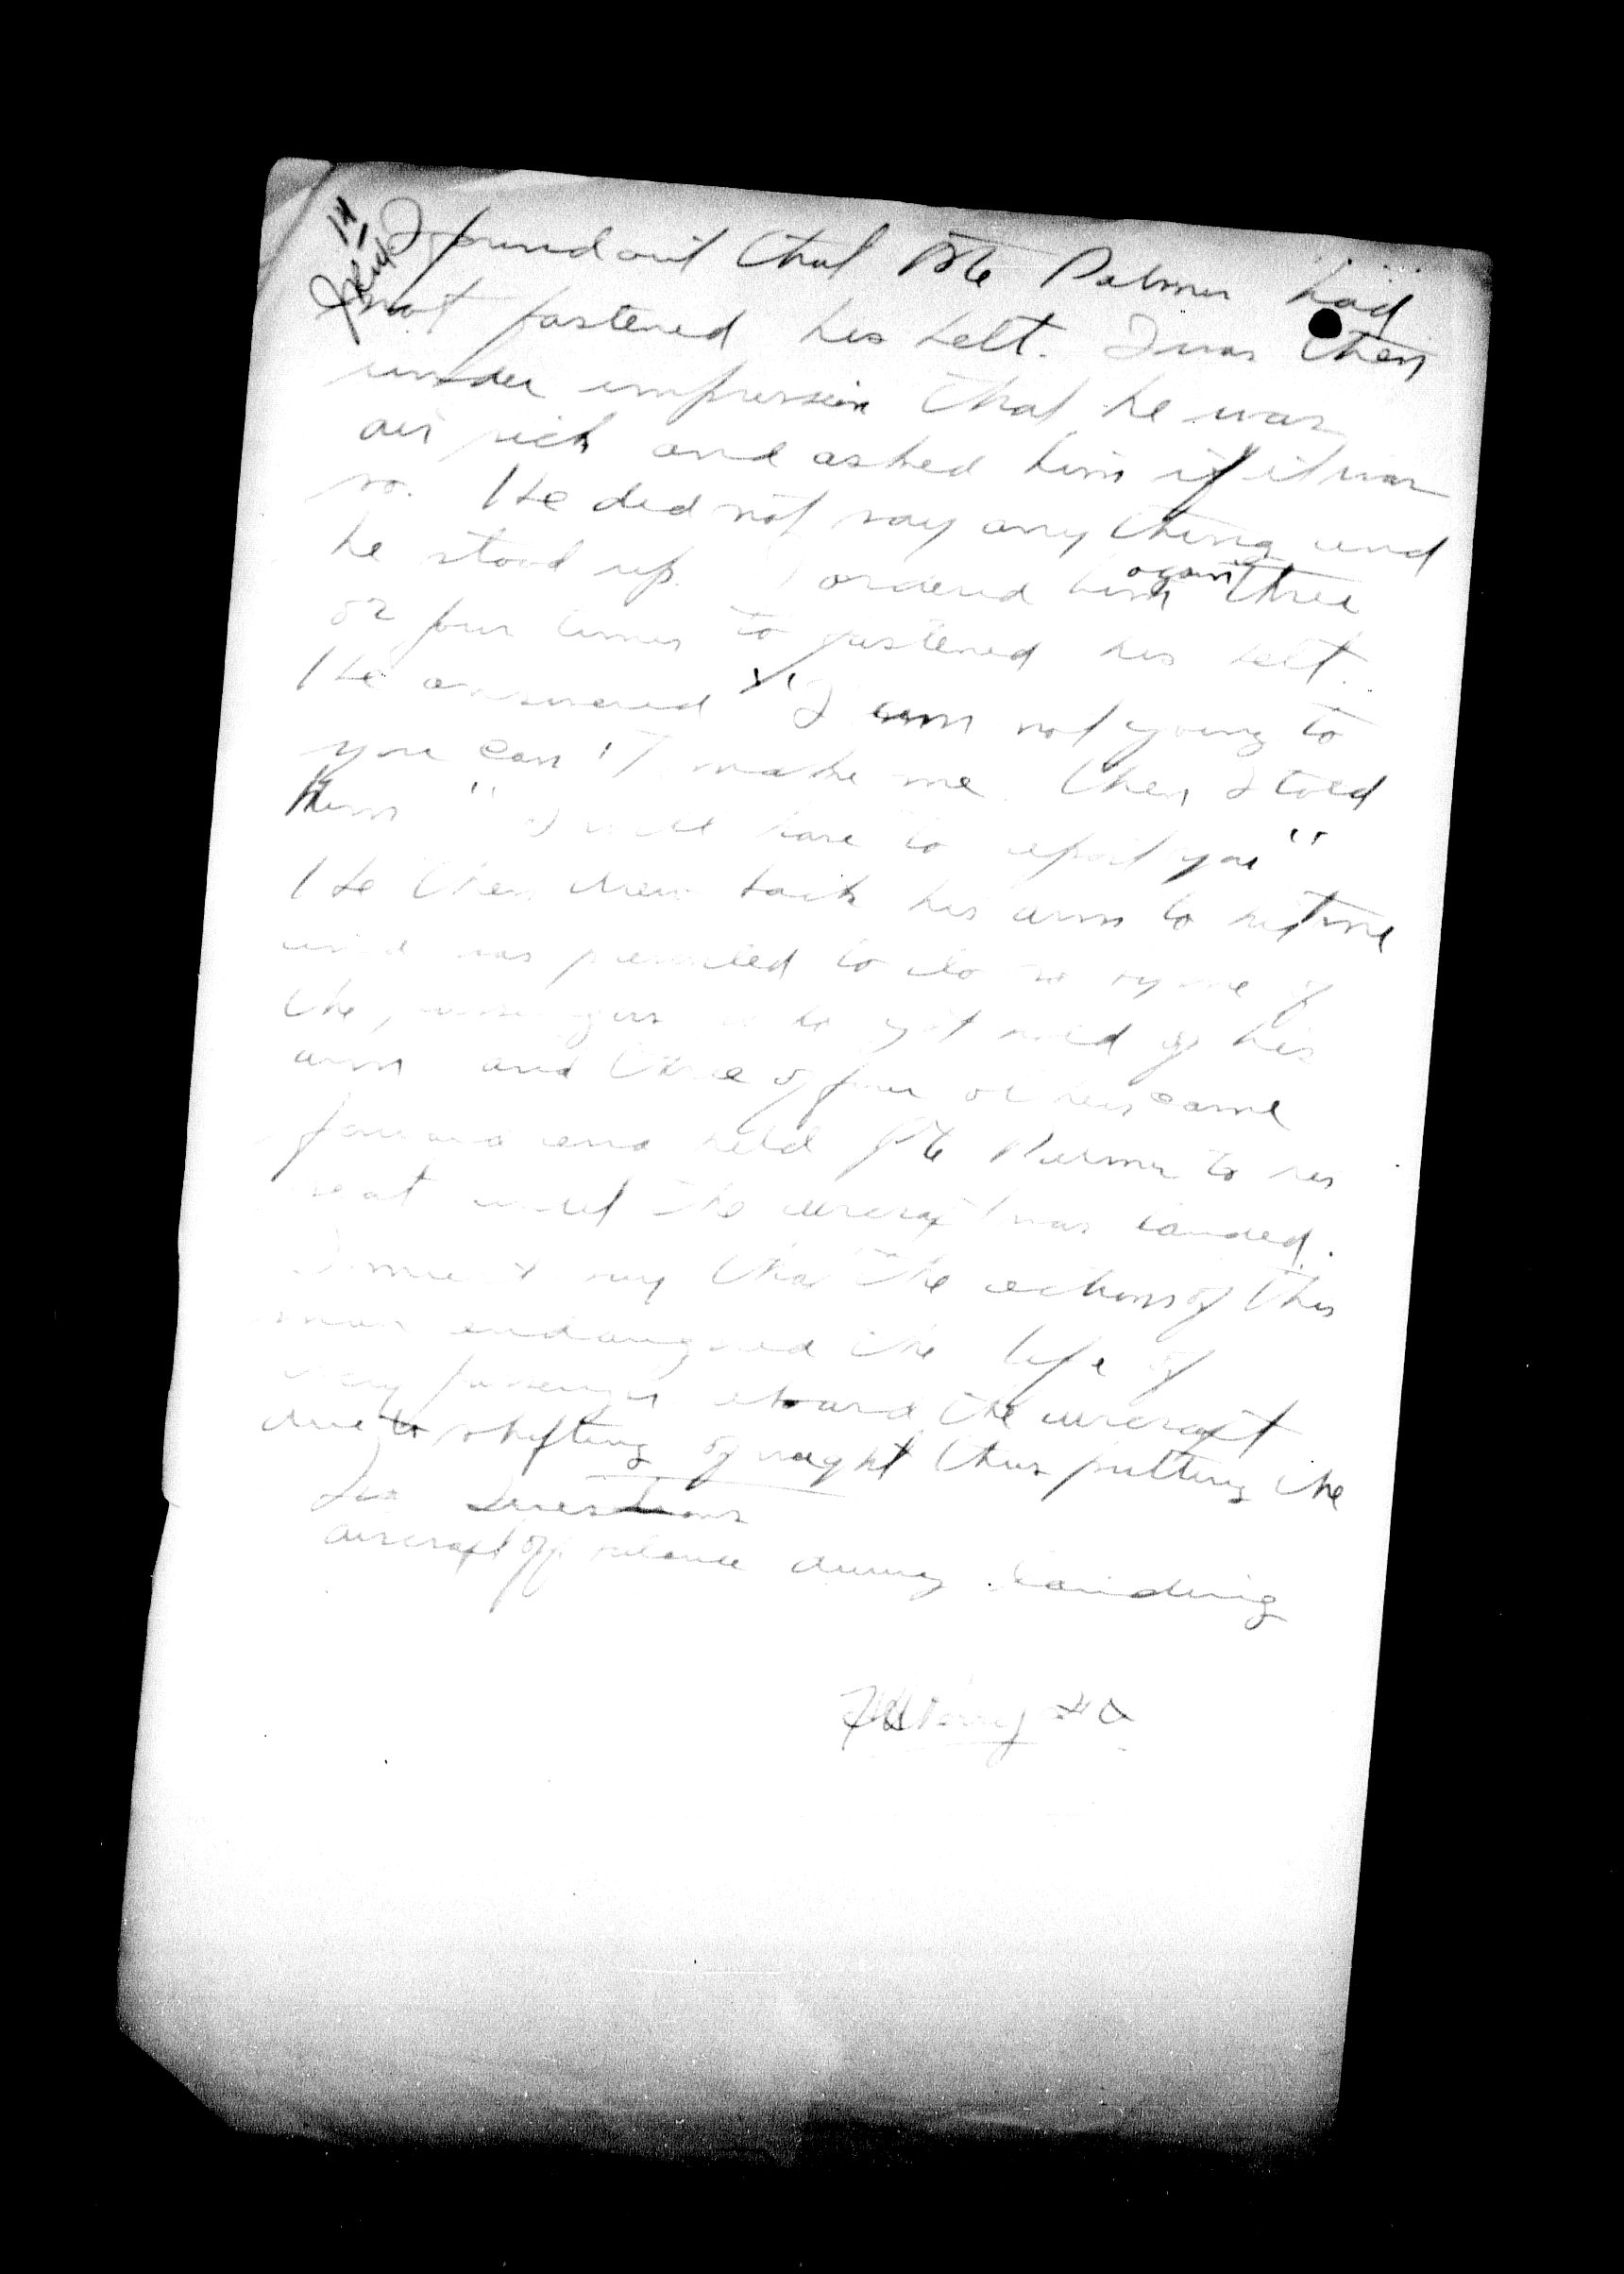 I found out that Pte Palmer had
not fastened his belt. I was then
under impression that he was
air sick and asked him if it was
so. He did not say any thing and
he stood up. I ordered him again three
or four times to fastened his belt.
He answered "I am not going to
you can't make me. Then I told
him "I will have to report you"
He then drew back his arm to hit me
and was prevented to do so by one of
the passengers who got hold of his
arm and three or four others came
forward and held Pte Palmer to his
seat until the aircraft was landed.
I must say that the actions of this
man endangered the life of
every passenger aboard the aircraft
due to shifting of weight thus putting the
No Questions
aircraft off balance during landing